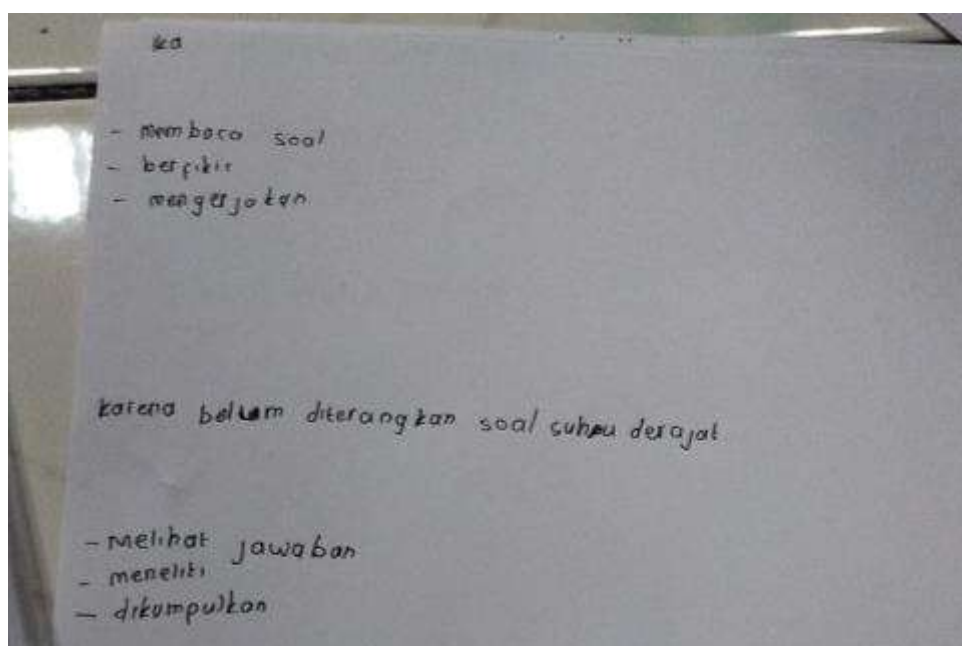 ka
- membaca soal
- berfikir
- mengerjakan
karena belum diterangkan soal suhu derajat
- melihat jawaban
- meneliti
- dikumpulkan